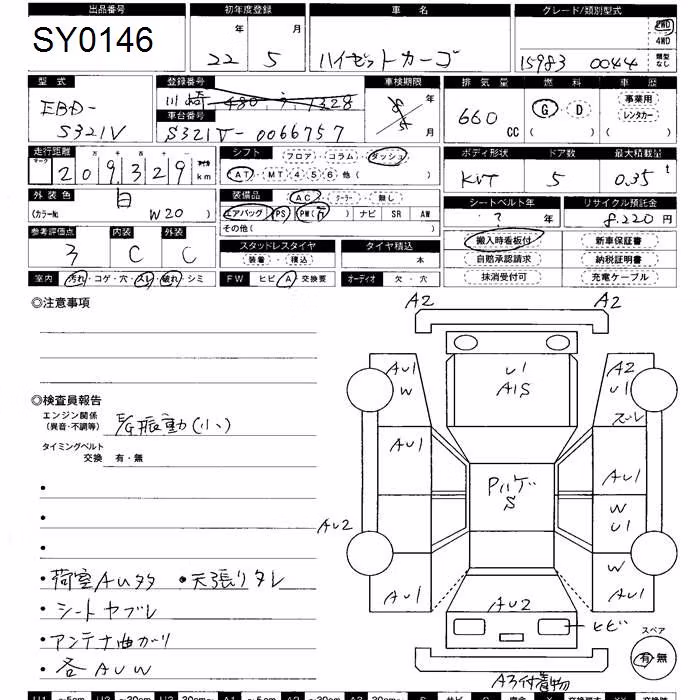 出品番号 初年度登録 車名 グレード/類別型式
SY0146 22年 5月 ハイゼットカーゴ 15983 0044 2WD 4WD 類型なし
型式 登録番号 車検期限 排気量 燃料 車歴
EBD-S321V 川崎 480 1328 年 月 660CC G・D 事業用 レンタカー
車台番号
S321V-0066757
走行距離 シフト フロア・コラム・ダッシュ ボディ形状 ドア数 最大積載量
マーク 十 万 千 百 マイル
209329km AT・MT 4 5 6 他( ) KVT 5 0.35t
外装色 装備品 AC・クーラー・無し シートベルト年 リサイクル預託金
白 (カラーNo. W20) エアバッグ PS PW ナビ SR AW ?年 8,220円
その他( )
参考評価点 内装 外装 スタッドレスタイヤ タイヤ積込 搬入時看板付 新車保証書
3 C C 装着・積込 本 自賠承認請求 納税証明書
室内 汚れ・コゲ・穴・スレ・破れ・シミ FW ヒビ・A・交換要 オーディオ 欠・穴 抹消受付可 充電ケーブル
◎注意事項
A2 A2
AU1 W U1 A1S A2 U1 スレ
◎検査員報告
エンジン関係
(異音・不調等) E/G振動(小)
タイミングベルト
交換 有・無
AU1 Pパゲ S AU1
W U1
AU2
W
AU1 AU2 AU1
・荷室AUタタ ・天張りタレ
・シートヤブレ ヒビ
スペア
・アンテナ曲がり
有・無
・各AUW A3付着物